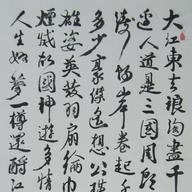 大江東去浪淘盡千
邊人道是三國周郎
濤拍岸卷起千
多少豪傑遙想公瑾
雄姿英發羽扇綸巾
煙滅故國神遊多情
人生如夢一樽還酹江